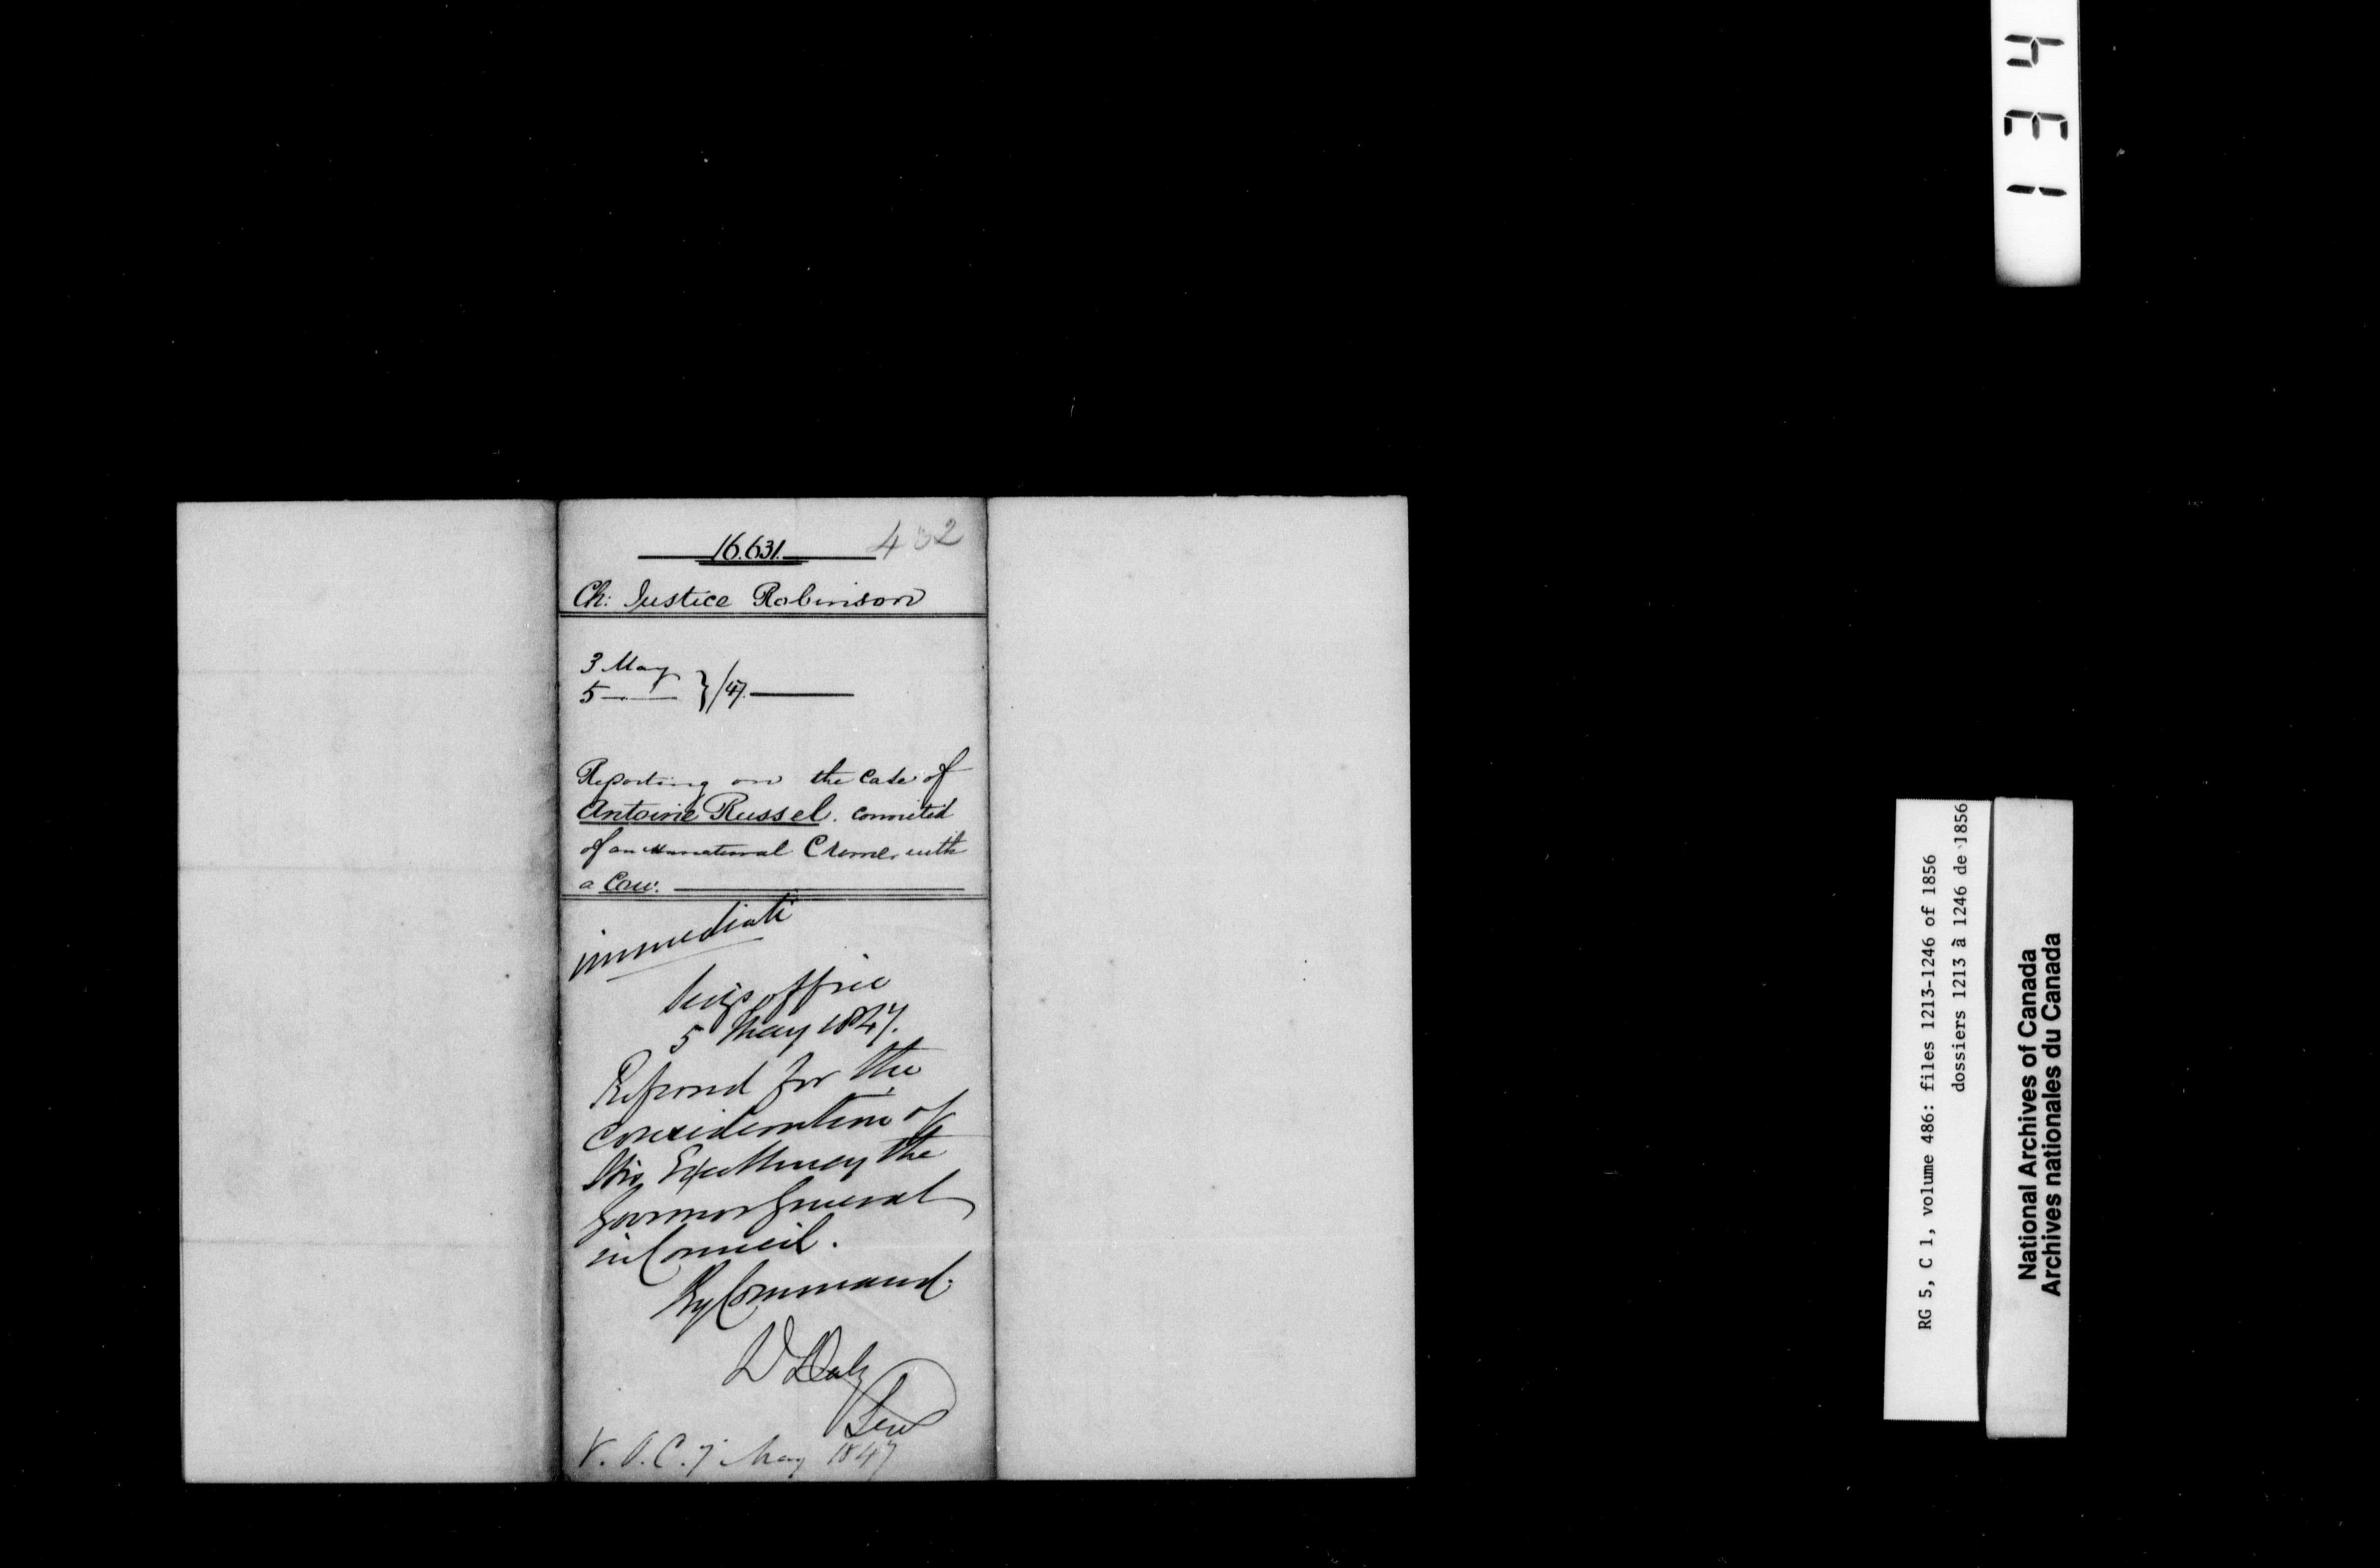 134
16.631.
Ch: Justice Robinson
3 May
5 — } /47.
Reporting on the Case of
Antoine Russel. convicted
of an unnatural Crime with
a Cow.
immediate
Secy's office
5 May 1847.
Referred for the
consideration of
His Excellency the
Governor General
in Council.
By Command.
D Daly
Secy
V. O. C. 7 May 1847
RG 5, C 1, volume 486: files 1213-1246 of 1856
dossiers 1213 à 1246 de 1856
National Archives of Canada
Archives nationales du Canada